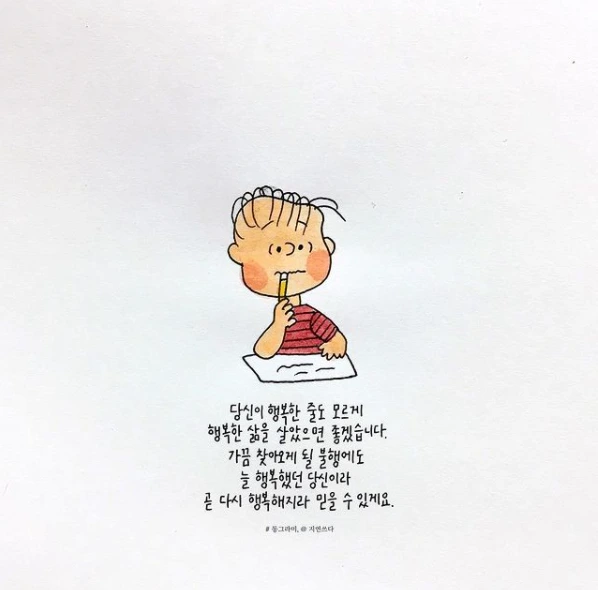 당신이 행복한 줄도 모르게
행복한 삶을 살았으면 좋겠습니다.
가끔 찾아오게 될 불행에도
늘 행복했던 당신이라
곧 다시 행복해지라 믿을 수 있게요.
# 동그라미, @ 지연쓰다